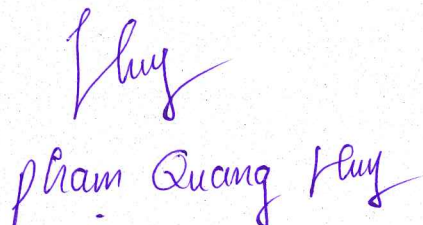 Huy
Phạm Quang Huy